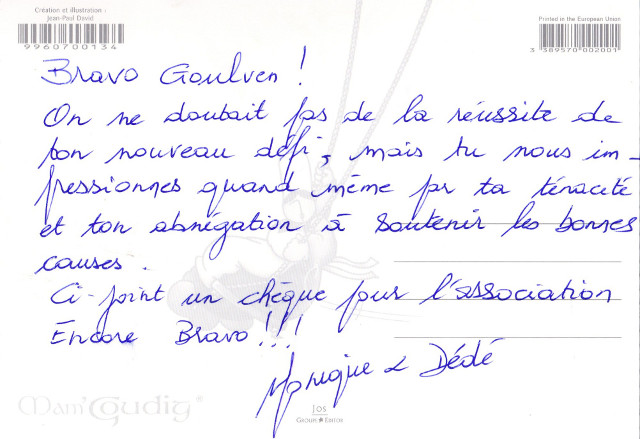 Création et illustration :
Jean-Paul David
9960700134
Printed in the European Union
3 389570 002001
Bravo Goulven !
On ne doutait pas de la réussite de
ton nouveau défi, mais tu nous im-
pressionnes quand même par ta ténacité
et ton abnégation à soutenir les bonnes
causes.
Ci-joint un chèque pour l'association
Encore Bravo !!!
Monique & Dédé
Mam'Goudig
Jos
Groupe Editor